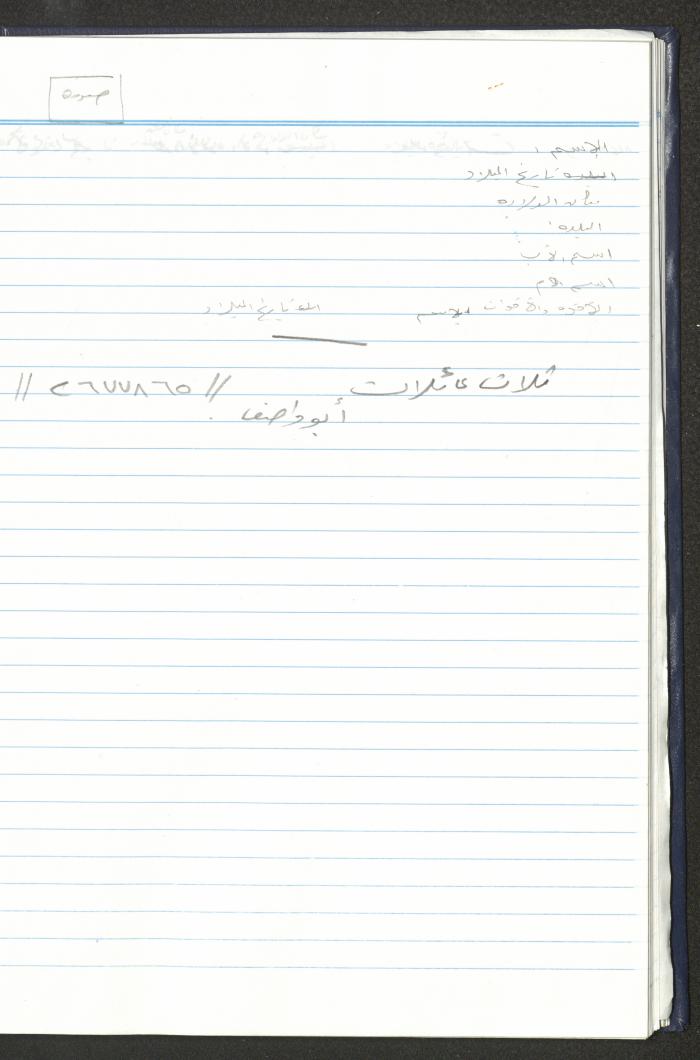 صورة
الإسم :
البلدة تاريخ الميلاد
مكان الولادة
البلدة :
اسم الأب
اسم الأم
الأخوة والأخوات الإسم تاريخ الميلاد
ثلاث عائلات // ٢٦٧٧٨٦٥ //
أبو واصف .